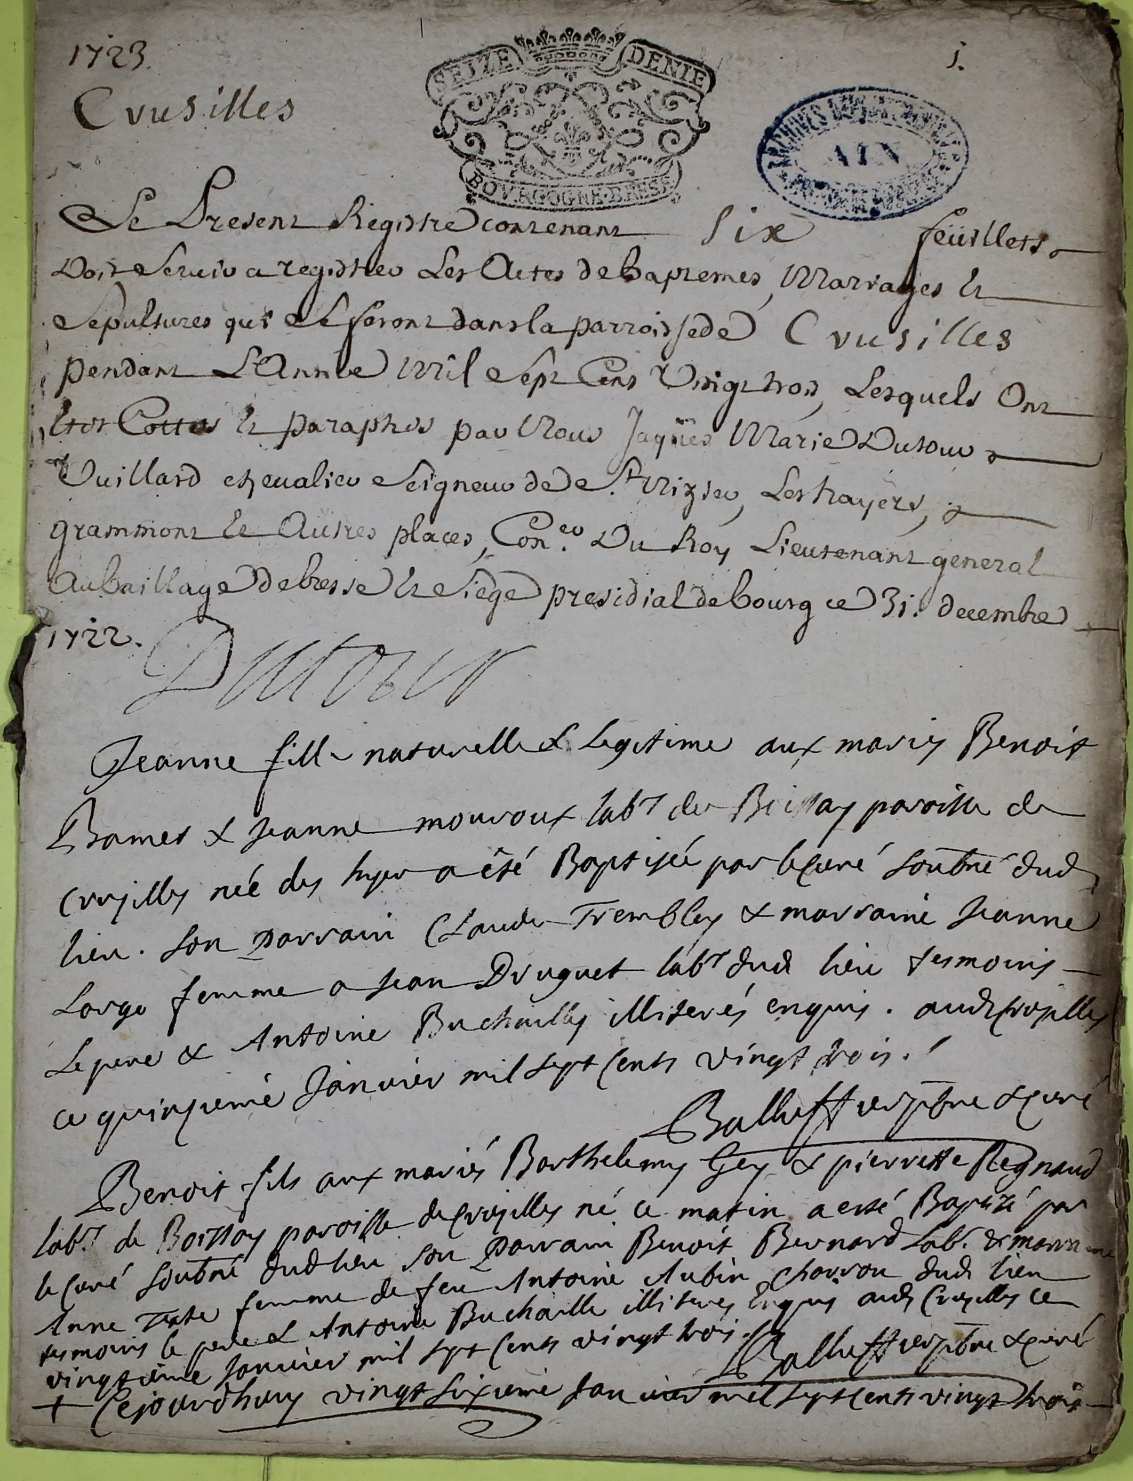 1723.
1.
SEIZE DENIE
Crusilles
BOURGOGNE·BRESSE
AIN
Le Present Registre contenant six feüillets
Doit Servir a registrer Les Actes de baptemes, Marriages et
Sepultures qui se feront dans la parroisse de Crusilles
pendant L'Année Mil Sept Cens Vingt trois, Lesquels Ont
Etés Cottes et paraphés par Nous Jaques Marie Dutour
Vuillard chevalier Seigneur de St. Nizier, Les
grammont et Autres places, Coner. Du Roy Lieutenant general
Au baillage de bresse et Siege presidial de bourg ce 31. decembre
1722.
Dutour
Jeanne fille naturelle & legitime aux mariés Benoist
& Jeanne mouroux labr de Boissay paroisse de
Crusilles née des hyer a été Baptisée par le Curé soubné dud
lieu. son parrain Claude Trembley & marraine Jeanne
Large femme a Jean Druguet labr dud lieu tesmoins
le pere & Antoine Buchailles illiterés enquis. aud Crusilles
ce quinzieme Janvier mil sept cents vingt trois.
pbre & curé
Benoit fils aux mariés Barthelemy Gey & pierrette Regnaud
labr. de Boissay paroisse de Crusilles né ce matin a esté Baptisé par
le Curé soubné dud lieu son parrain Benoit Bernard lab. & marraine
Anne femme de feu Antoine Aubin charron dud lieu
tesmoins le pere & Antoine Buchaille illiteres Enquis aud Crusilles ce
vingtieme Janvier mil sept cents vingt trois.
pbre & curé
+ Cejourdhuy vingt sixieme Janvier mil sept cents vingt trois